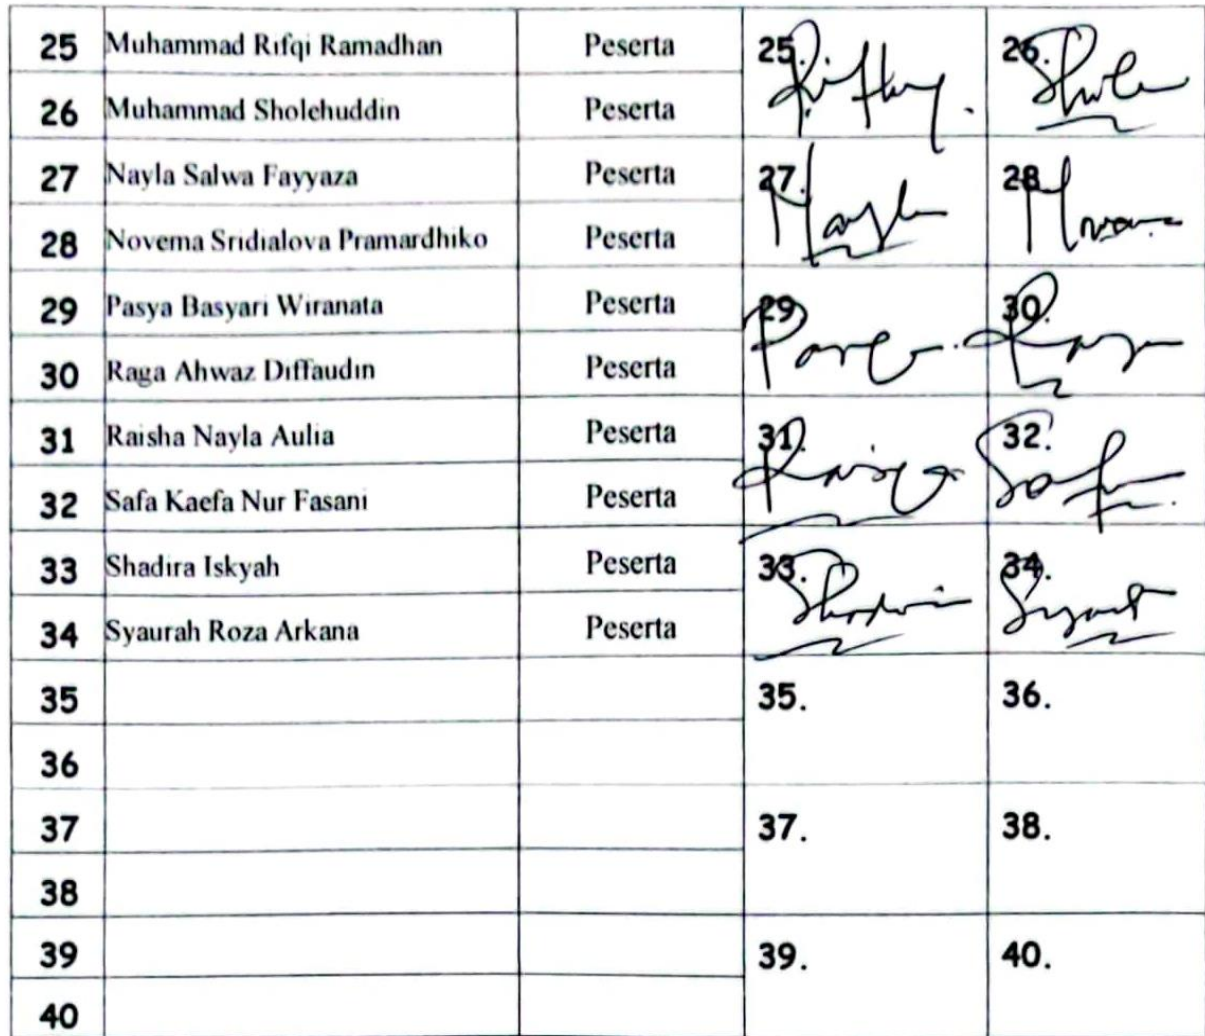 25 Muhammad Rifqi Ramadhan Peserta 25. 26.
26 Muhammad Sholehuddin Peserta
27 Nayla Salwa Fayyaza Peserta 27. 28
28 Novema Sridialova Pramardhiko Peserta
29 Pasya Basyari Wiranata Peserta 29. 30.
30 Raga Ahwaz Diffaudin Peserta
31 Raisha Nayla Aulia Peserta 31. 32.
32 Safa Kaefa Nur Fasani Peserta
33 Shadira Iskyah Peserta 33. 34.
34 Syaurah Roza Arkana Peserta
35 35. 36.
36
37 37. 38.
38
39 39. 40.
40